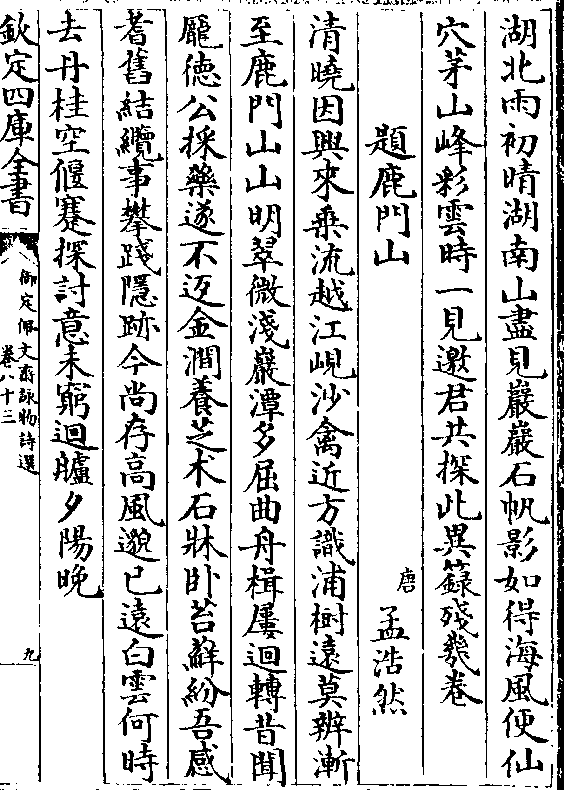 湖北雨初晴湖南山盡見巖巖石帆影如得海風便仙
穴茅山峰彩雲時一見邀君共探此異籙殘幾卷
題鹿門山
唐 孟浩然
清曉因興來乗流越江峴沙禽近方識浦樹遠莫辨漸
至鹿門山山明翠微淺巖潭多屈曲舟楫屢迴轉昔聞
龎徳公採藥遂不返金澗養芝木石牀卧苔蘚紛吾感
耆舊結纜事攀踐隱跡今尚存高風邈已遠白雲何時
去丹桂空偃蹇探討意未窮迴艫夕陽晚
欽定四庫全書
御定佩文齋詠物詩選
卷八十三
九